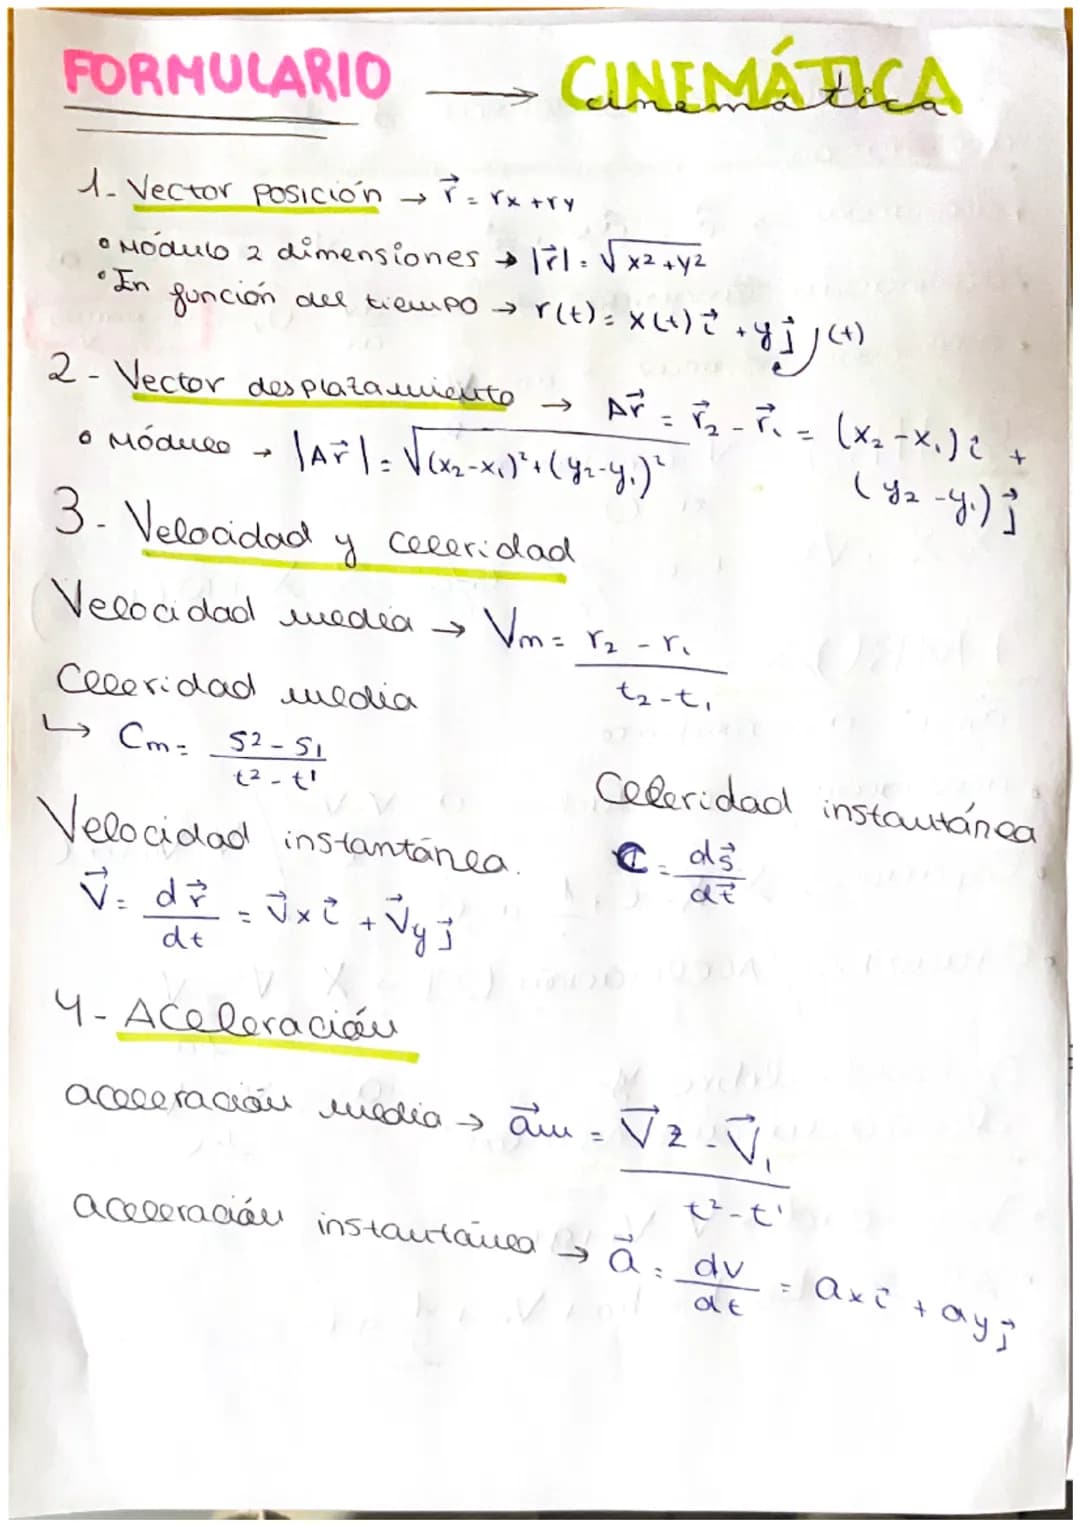 FORMULARIO → CINEMÁTICA
cinemática
1- Vector posición → r⃗ = rx + ry
• Módulo 2 dimensiones → |r⃗| = √x² + y²
• En función del tiempo → r(t) = x(t) i⃗ + y j⃗ (t)
2- Vector desplazamiento → Δr⃗ = r⃗₂ - r⃗₁ = (x₂ - x₁) i⃗ +
(y₂ - y₁) j⃗
• Módulo → |Δr⃗| = √(x₂-x₁)² + (y₂-y₁)²
3- Velocidad y celeridad
Velocidad media → Vm = r₂ - r₁
t₂ - t₁
Celeridad media
↳ Cm = S2 - S1
t² - t¹
Velocidad instantánea.
V⃗ = dr⃗ = V⃗x i⃗ + V⃗y j⃗
dt
Celeridad instantánea
C = ds⃗
dt⃗
4- Aceleración
aceleración media → a⃗m = V⃗2 - V⃗₁
t² - t¹
aceleración instantánea → a⃗ = dv = ax i⃗ + ay j⃗
dt